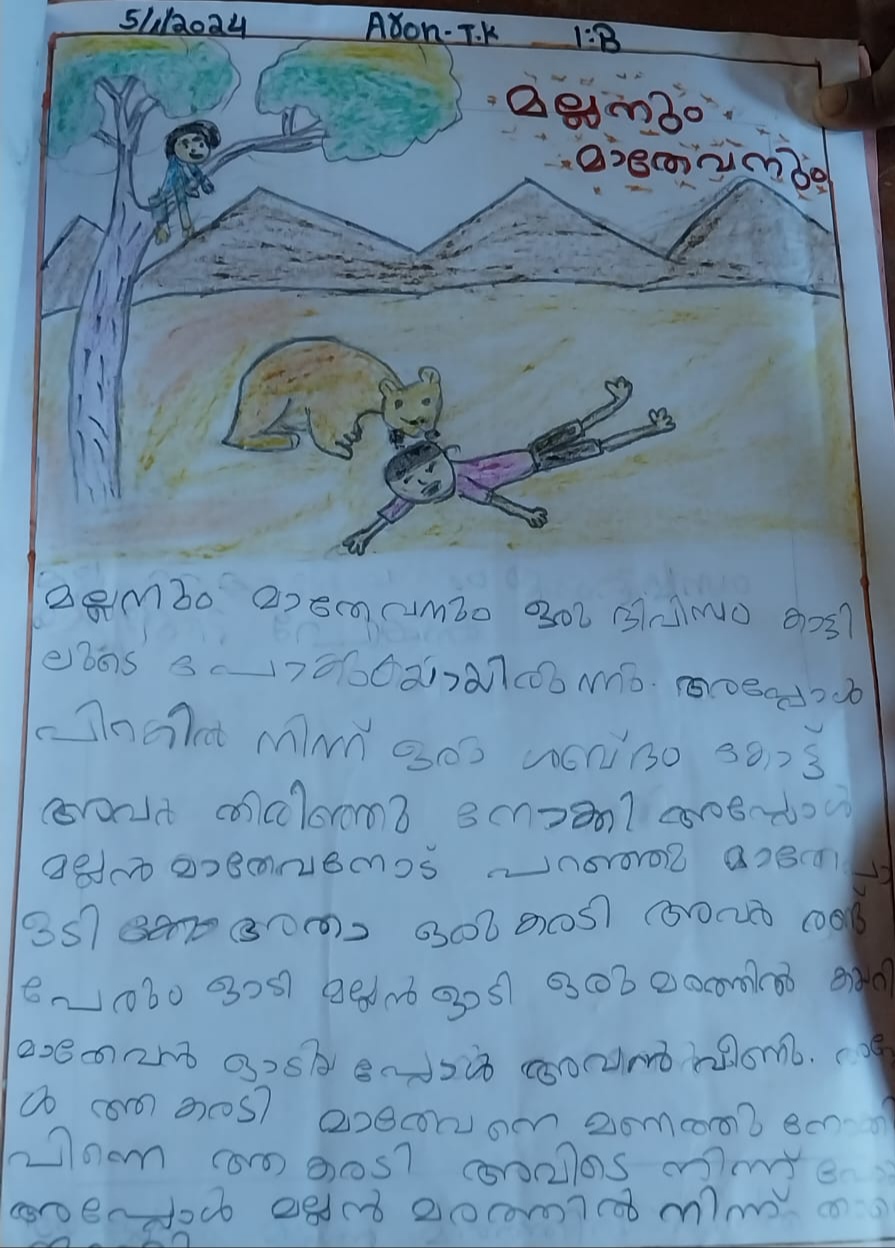 5/1/2024 Aron-T.K 1:B
മല്ലനും
മാതേവനും
മല്ലനും മാതേവനും ഒരു ദിവിസം കാട്ടി
ലൂടെ പോകുകയായിരുന്നു. അപ്പോൾ
പിറകിൽ നിന്ന് ഒരു ശബ്ദം കേട്ട്
അവർ തിരിഞ്ഞു നോക്കി അപ്പോൾ
മല്ലൻ മാതേവനോട് പറഞ്ഞു
ഒരു കരടി അവർ രണ്ട്
പേരും ഓടി മല്ലൻ ഓടി ഒരു മരത്തിൽ കയറി
മാതേവൻ അവൻ വീണു.
ൾ ആ കരടി മാതേവനെ മണത്തു നോക്കി
പിന്നെ ആ കരടി അവിടെ നിന്ന്
അപ്പോൾ മല്ലൻ മരത്തിൽ നിന്ന്